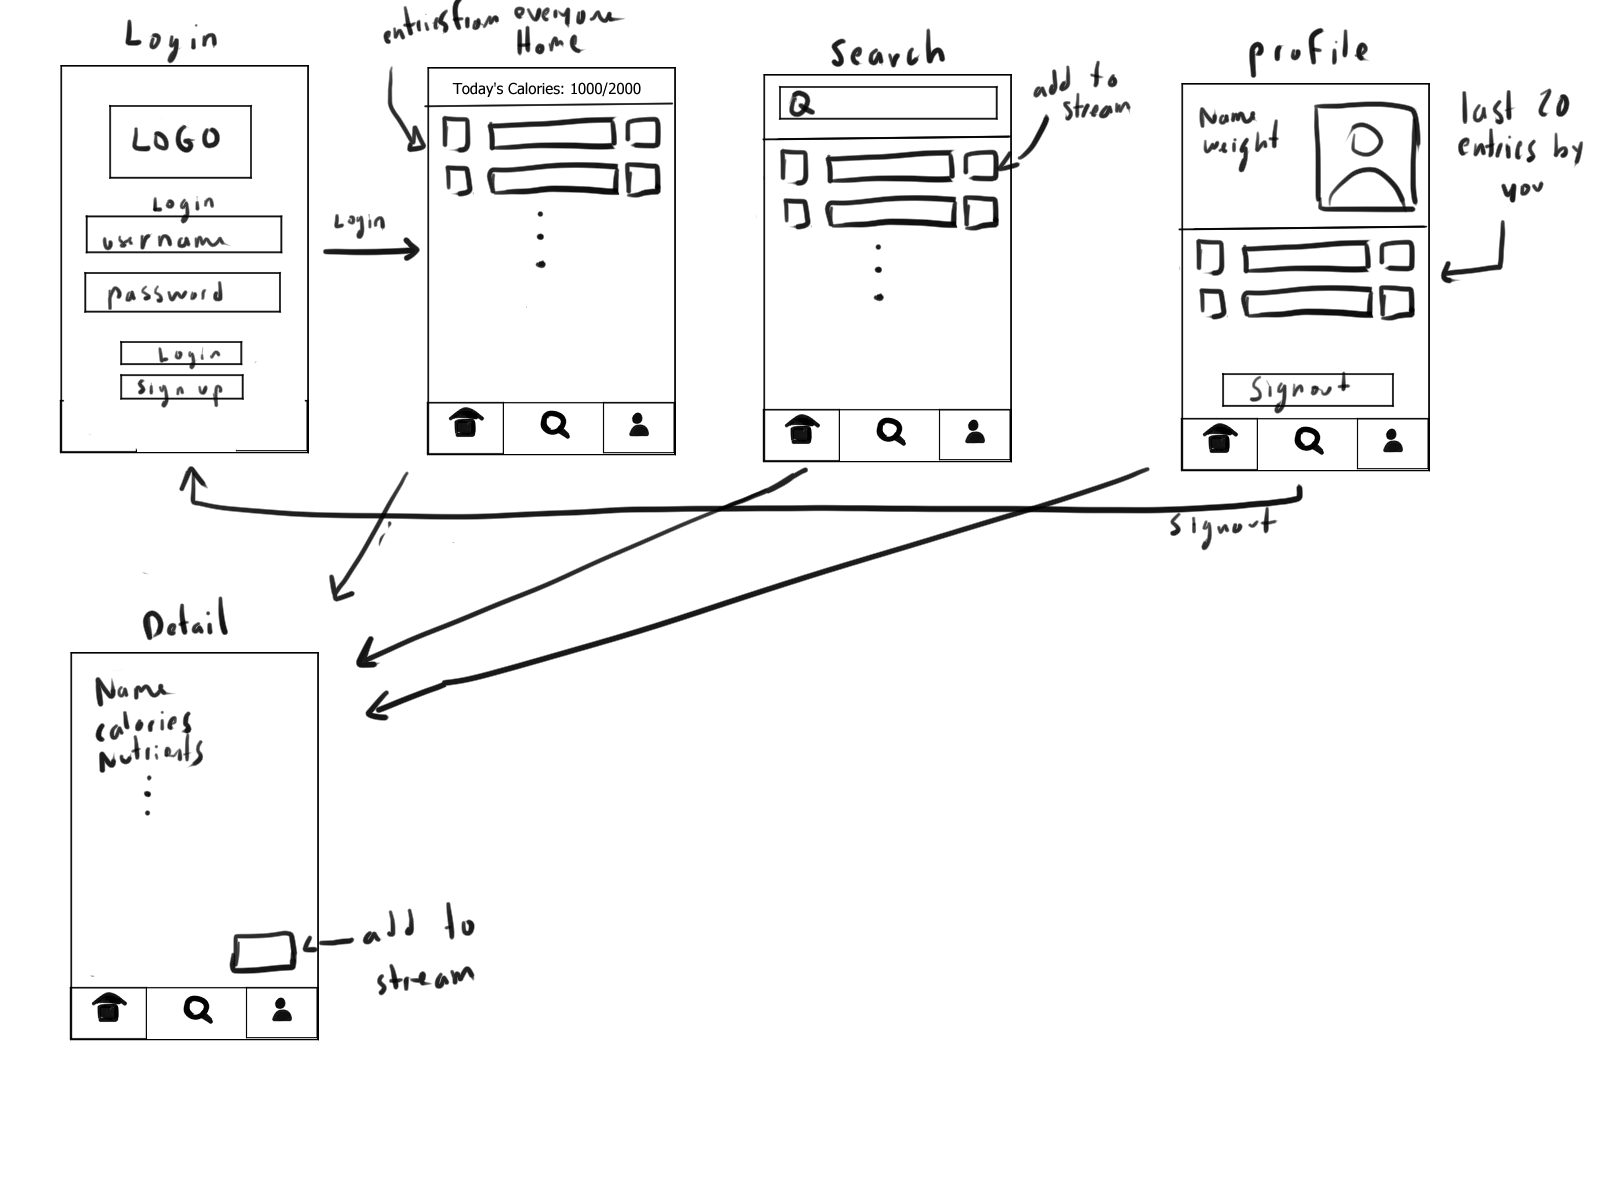 Login
LOGO
Login
username
password
Login
sign up
Login
entries from everyone
Home
Today's Calories: 1000/2000
Search
add to
stream
profile
Name
weight
last 20
entries by
you
Signout
Signout
Detail
Name
calories
Nutrients
add to
stream